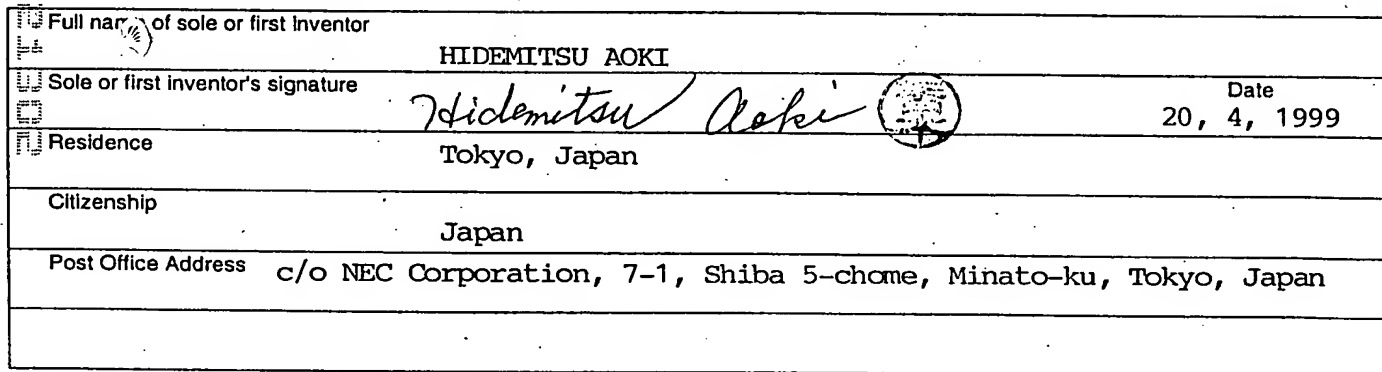 Full name of sole or first Inventor
HIDEMITSU AOKI
Sole or first inventor's signature
Hidemitsu Aoki
Date
20, 4, 1999
Residence
Tokyo, Japan
Citizenship
Japan
Post Office Address c/o NEC Corporation, 7-1, Shiba 5-chome, Minato-ku, Tokyo, Japan